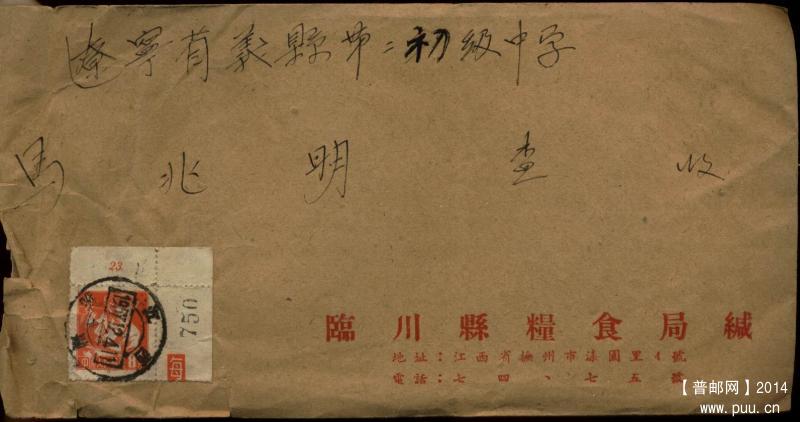 辽寧省義縣苐二初級中学
馬兆明查收
23
750
臨川縣糧食局緘
地址：江西省撫州市溙園里4號
電話：七四、七五號
【普邮网】2014
www.puu.cn